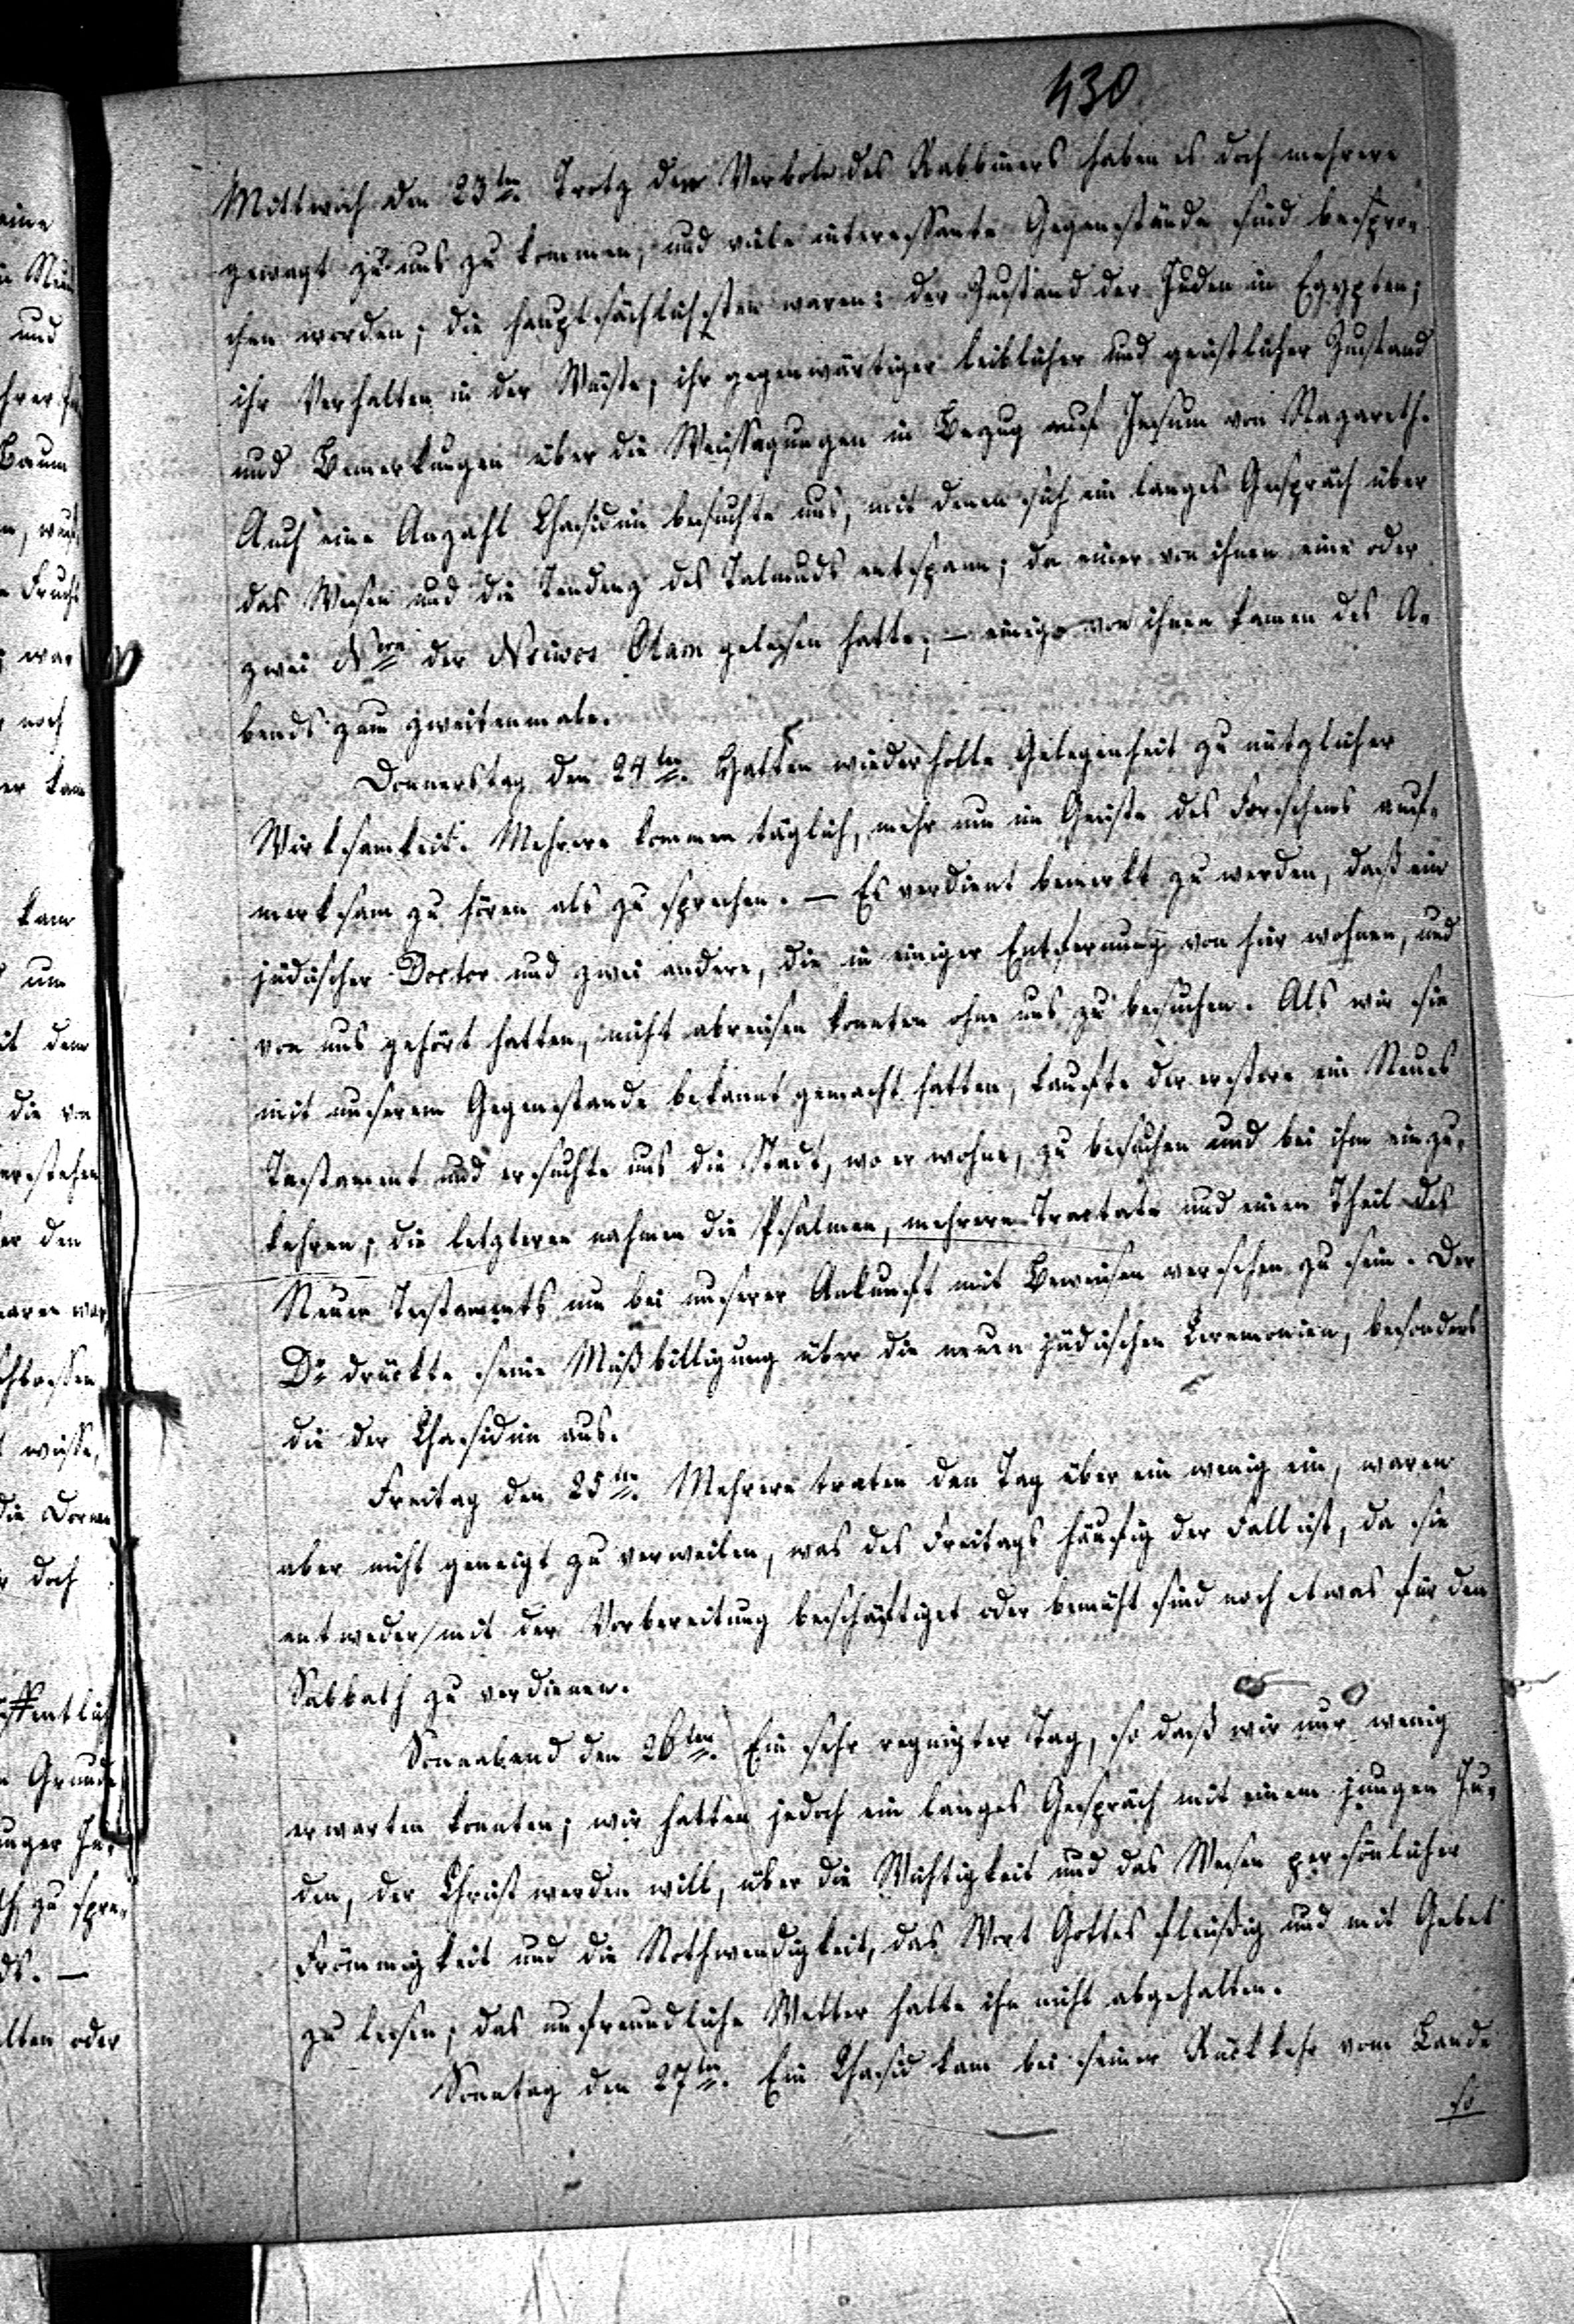 430
Mittwoch den 23ten. Trotz dem Verbote des Rabbiners haben es doch mehrere
gewagt zu uns zu kommen, und viele interessante Gegenstände sind bespro-
chen worden; die hauptsächlichsten waren: der Zustand der Juden in Egypten;
ihr Verhalten in der Wüste; ihr gegenwärtiger leiblicher und geistlicher Zustand
und Bemerkungen über die Weissagungen in Bezug auf Jesum von Nazareth.
Auch eine Anzahl Chasidim besuchte uns, mit denen sich ein langes Gespräch über
das Wesen und die Tendenz des Talmuds entspann; da einer von ihnen eine oder
zwei Nron der Neiwos Olam gelesen hatte; — einige von ihnen kamen des A-
bends zum zweitenmale.
Donnerstag den 24ten. Hatten wiederholte Gelegenheit zu nützlicher
Wirksamkeit. Mehrere kommen täglich, mehr um im Geiste des Forschens auf-
merksam zu hören als zu sprechen. — Es verdient bemerkt zu werden, daß ein
jüdischer Doctor und zwei andere, die in einiger Entfernung von hier wohnen, und
von uns gehört hatten, nicht abreisen konnten ohne uns zu besuchen. Als wir sie
mit unserem Gegenstande bekannt gemacht hatten, kaufte der erstere ein Neues
Testament und ersuchte uns die Stadt, wo er wohne, zu besuchen und bei ihm einzu-
kehren; die letzteren nahmen die Psalmen, mehrere Tractate und einen Theil des
Neuen Testaments um bei unserer Ankunft mit Beweisen versehen zu sein. Der
Dr drückte seine Mißbilligung über die neuen jüdischen Ceremonien, besonders
die der Chasidim aus.
Freitag den 25ten. Mehrere traten den Tag über ein wenig ein, waren
aber nicht geneigt zu verweilen, was des Freitags häufig der Fall ist, da sie
entweder mit der Vorbereitung beschäftiget oder bemüht sind noch etwas für den
Sabbath zu verdienen.
Sonnabend den 26ten. Ein sehr regnigter Tag, so daß wir nur wenig
erwarten konnten; wir hatten jedoch ein langes Gespräch mit einem jungen Ju-
den, der Christ werden will, über die Wichtigkeit und das Wesen persönlicher
Frömmigkeit und die Nothwendigkeit, das Wort Gottes fleißig und mit Gebet
zu lesen; das unfreundliche Wetter hatte ihn nicht abgehalten.
Sonntag den 27ten. Ein Chasid kam bei seiner Rückkehr vom Lande
so